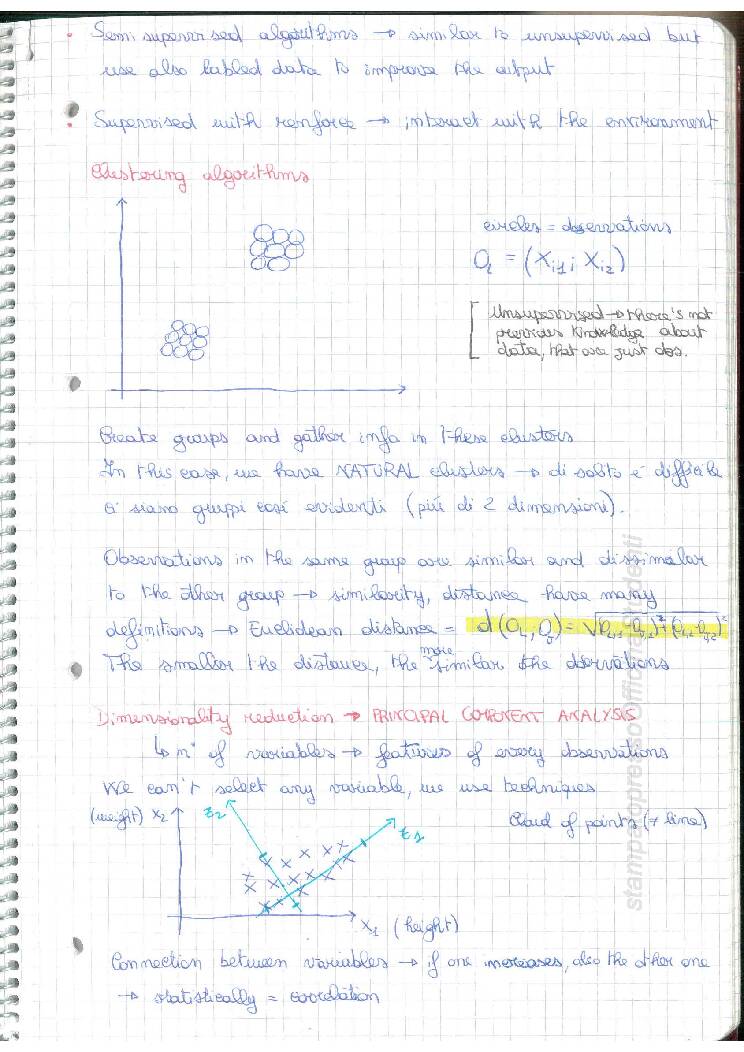 • Semi supervised algorithms → similar to unsupervised but
use also labled data to improve the output
• Supervised with renforce → interact with the environment
Clustering algorithms
circles = observations
O₁ = (Xi1; Xi2)
Unsupervised → there's not
previous knowledge about
data, that are just obs.
Create groups and gather info in these clusters
In this case, we have NATURAL clusters → di solito è difficile
ci siano gruppi così evidenti (più di 2 dimensioni).
Observations in the same group are similar and dissimalar
to the other group → similarity, distance have many
definitions → Euclidean distance = d(Oi, Oj) =
more
The smaller the distance, the similar the observations
Dimensionality reduction → PRINCIPAL COMPONENT ANALYSIS
↳ n° of variables → features of every observations
We can't select any variable, we use techniques
(weight) X2
z2
z1
Cloud of points (≠ line)
X1 (height)
Connection between variables → if one increases, also the other one
→ statistically = correlation
stampato presso Officina Studenti